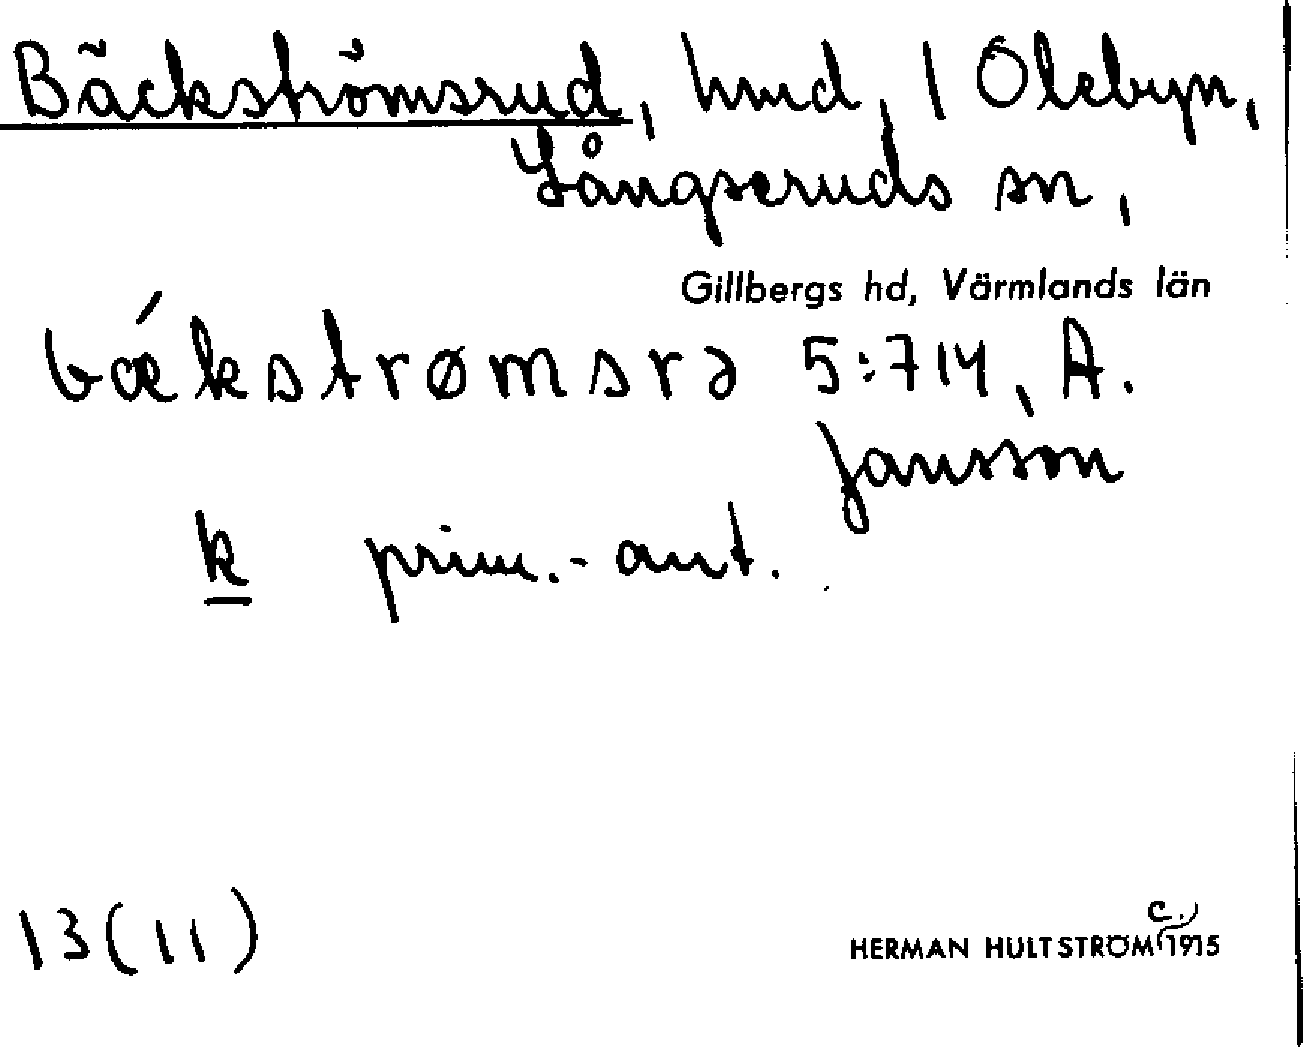 Bäckströmsrud, hmd, 1 Olebyn,
Långseruds sn,
Gillbergs hd, Värmlands län
bǽkstrømsrə 5:714, A.
Jansson
k prim.-ant.
13(11)
c.
HERMAN HULTSTRÖM 1915